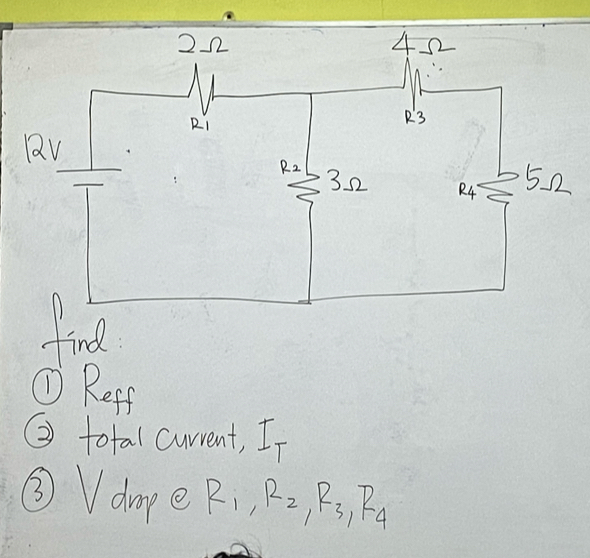 2Ω
4Ω
R1
R3
12V
R2
3Ω
R4
5Ω
find:
① Reff
② total current, IT
③ V drop @ R1, R2, R3, R4